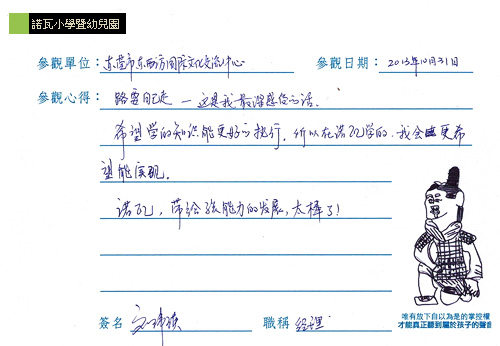 諾瓦小學暨幼兒園
參觀單位： 东莞市东西方国际文化交流中心 參觀日期： 2013年10月31日
參觀心得： 路要自己走 — 这是我最深感悟的话.
希望学的知识能更好的执行. 所以在诺瓦学的, 我会更希
望能实现.
诺瓦, 带给孩能力的发展, 太棒了!
唯有放下自以為是的掌控權
才能真正聽到屬於孩子的聲音
簽名 職稱 经理